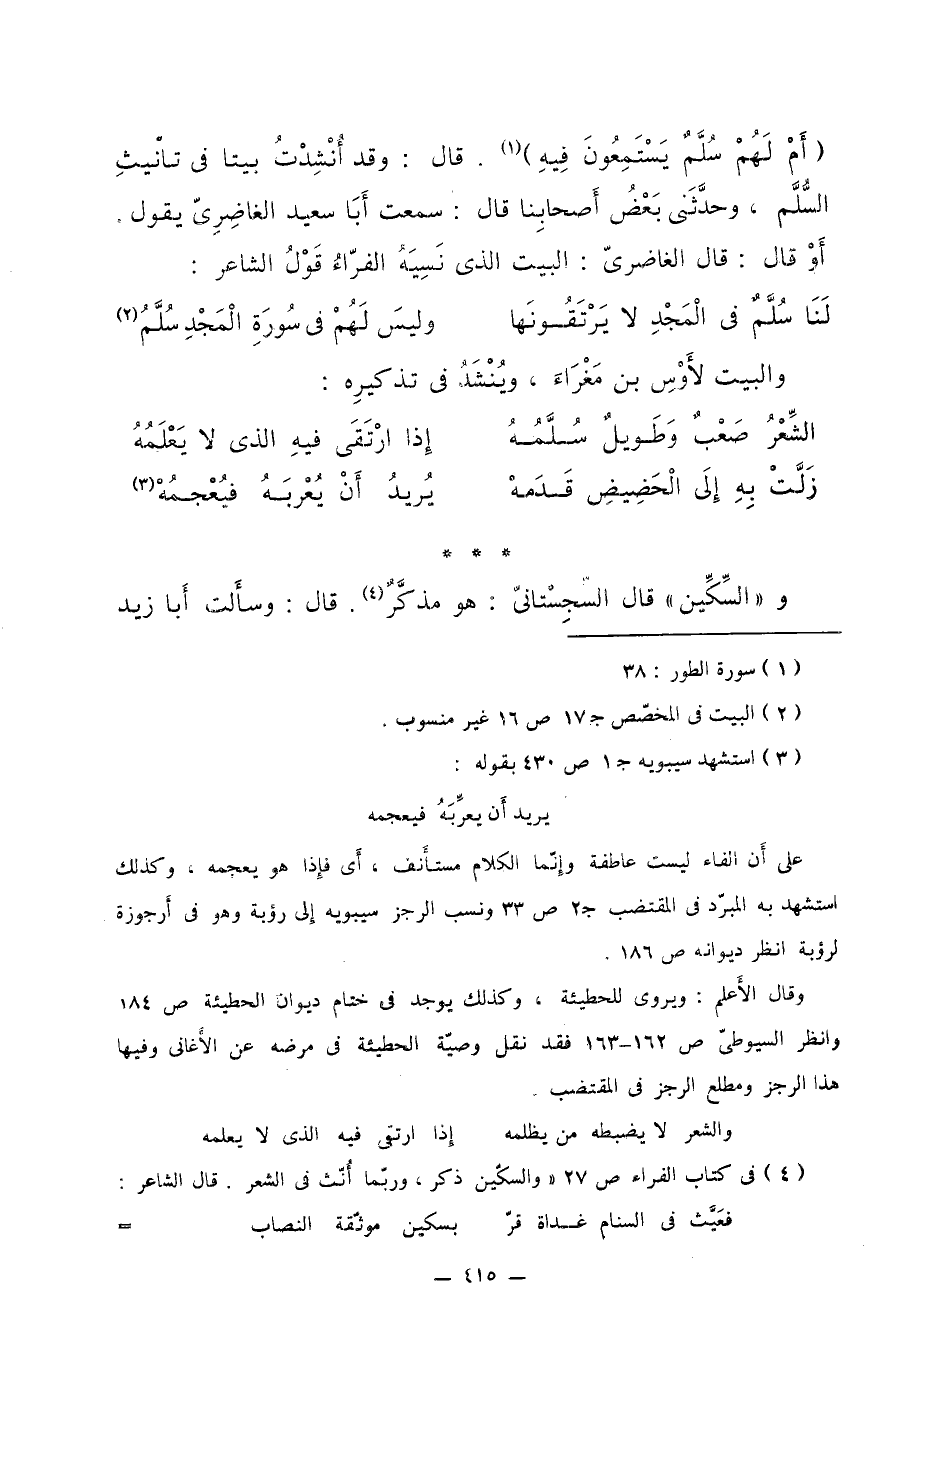 ( أَمْ لَهُمْ سُلَّمٌ يَسْتَمِعُونَ فِيهِ )(١) . قال : وقد أُنْشِدْتُ بيتا فى تأنيثِ
السُّلَّم ، وحدَّثَنى بَعْضُ أَصحابِنا قال : سمعت أَبَا سعيد الغاضِرىّ يقول .
أَوْ قال : قال الغاضرىّ : البيت الذى نَسِيَهُ الفرّاءُ قَوْلُ الشاعر :
لَنَا سُلَّمٌ فى الْمَجْدِ لا يَرْتَقُونَها وليسَ لَهُمْ فى سُورَةِ الْمَجْدِ سُلَّمُ(٢)
والبيت لأَوْسِ بن مَغْرَاءَ ، ويُنْشَدُ فى تذكيرِه :
الشِّعْرُ صَعْبٌ وَطَويلٌ سُلَّمُهُ إِذا ارْتَقَى فيهِ الذى لا يَعْلَمُهُ
زَلَّتْ بِهِ إِلَى الْحَضِيضِ قَدَمهْ يُريدُ أَنْ يُعْرِبَهُ فيُعْجِمُهْ(٣)
* * *
و « السِّكِّين » قال السِّجِسْتانىّ : هو مذكَّرٌ(٤) . قال : وسأَلت أَبا زيد
( ١ ) سورة الطور : ٣٨
( ٢ ) البيت فى المخصّص ج١٧ ص ١٦ غير منسوب .
( ٣ ) استشهد سيبويه ج١ ص ٤٣٠ بقوله :
يريد أَن يعرِّبَهُ فيعجمه
على أَن الفاء ليست عاطفة وإنّما الكلام مستأْنف ، أَى فإذا هو يعجمه ، وكذلك
استشهد به المبرّد فى المقتضب ج٢ ص ٣٣ ونسب الرجز سيبويه إلى رؤبة وهو فى أَرجوزة
لرؤبة انظر ديوانه ص ١٨٦ .
وقال الأَعلم : ويروى للحطيئة ، وكذلك يوجد فى ختام ديوان الحطيئة ص ١٨٤
وانظر السيوطىّ ص ١٦٢-١٦٣ فقد نقل وصيّة الحطيئة فى مرضه عن الأَغانى وفيها
هذا الرجز ومطلع الرجز فى المقتضب .
والشعر لا يضبطه من يظلمه إذا ارتقى فيه الذى لا يعلمه
( ٤ ) فى كتاب الفراء ص ٢٧ « والسكّين ذكر ، وربّما أُنّث فى الشعر . قال الشاعر :
فعَيَّث فى السنام غداة قرّ بسكين موثّقة النصاب =
— ٤١٥ —